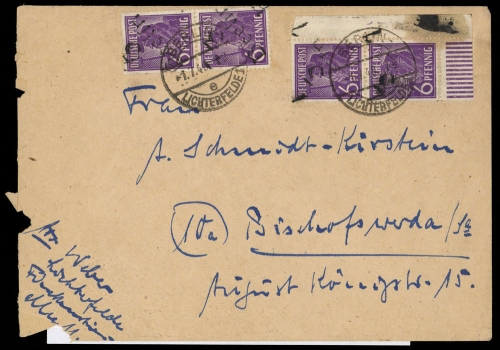 DEUTSCHE POST 6 PFENNIG
DEUTSCHE POST 6 PFENNIG
DEUTSCHE POST 6 PFENNIG
DEUTSCHE POST 6 PFENNIG
BERLIN
-1.7.
e
LICHTERFELDE
BERLIN
LICHTERFELDE
Frau
A. Schmidt-Kirstein
(10a) Bischofswerda/Sa
August Königstr. 15.
Weber
Lichterfelde